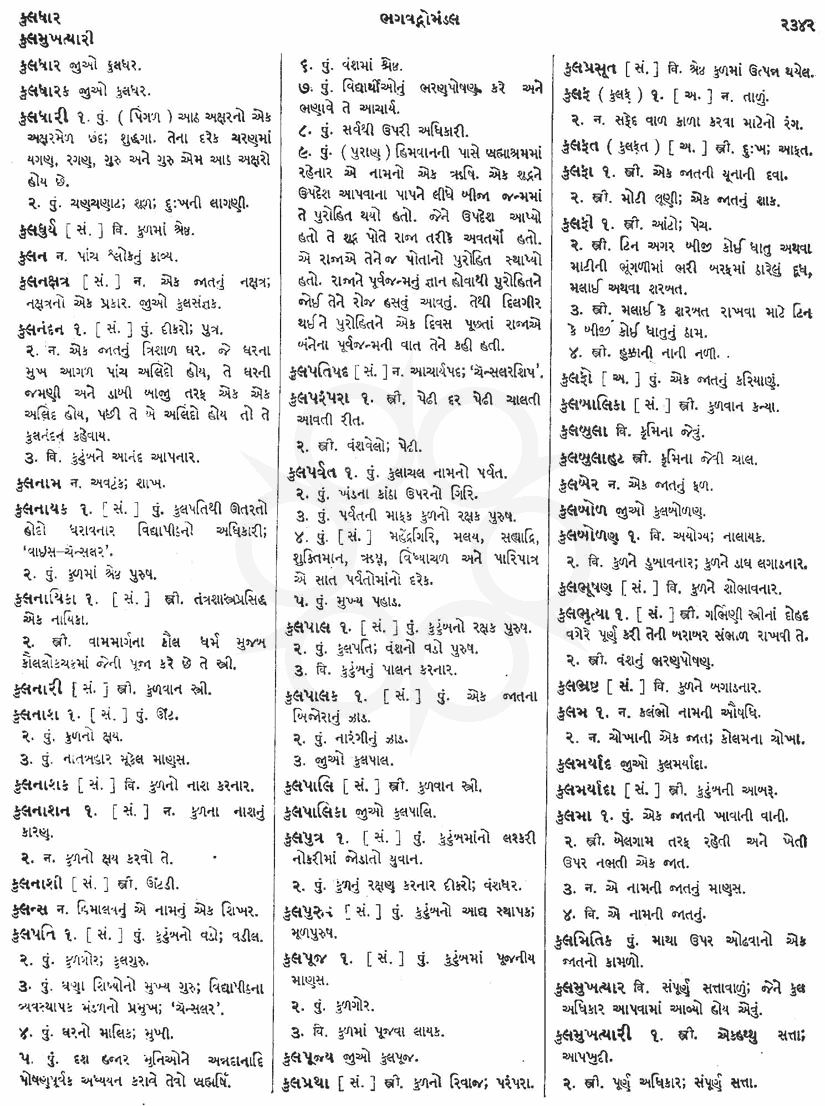 કુલધાર
ભગવદ્ગોમંડલ
૨૩૪૨
કુલમુખત્યારી
કુલધાર જીઓ કુલધર.
કુલધારક જીઓ કુલધર.
કુલધારી ૧. પું. ( પિંગળ ) આઠ અક્ષરનો એક
અક્ષરમેળ છંદ; શુદ્ધગા. તેના દરેક ચરણમાં
યગણ, રગણ, ગુરુ અને ગુરુ એમ આઠ અક્ષરો
હોય છે.
૨. પું. ચણચણાટ; શૂળ; દુઃખની લાગણી.
કુલધુર્ય [ સં. ] વિ. કુળમાં શ્રેષ્ઠ.
કુલન ન. પાંચ શ્લોકનું કાવ્ય.
કુલનક્ષત્ર [ સં. ] ન. એક જાતનું નક્ષત્ર;
નક્ષત્રનો એક પ્રકાર. જીઓ કુલસંજ્ઞક.
કુલનંદન ૧. [ સં. ] પું. દીકરો; પુત્ર.
૨. ન. એક જાતનું ત્રિશાળ ઘર. જે ઘરના
મુખ આગળ પાંચ અલિંદો હોય, તે ઘરની
જમણી અને ડાબી બાજુ તરફ એક એક
અલિંદ હોય, પછી તે બે અલિંદો હોય તો તે
કુલનંદન કહેવાય.
૩. વિ. કુટુંબને આનંદ આપનાર.
કુલનામ ન. અવટંક; શાખ.
કુલનાયક ૧. [ સં. ] પું. કુલપતિથી ઊતરતો
હોદ્દો ધરાવનાર વિદ્યાપીઠનો અધિકારી;
‘વાઇસ-ચૅન્સલર’.
૨. પું. કુળમાં શ્રેષ્ઠ પુરુષ.
કુલનાયિકા ૧. [ સં. ] સ્ત્રી. તંત્રશાસ્ત્રપ્રસિદ્ધ
એક નાયિકા.
૨. સ્ત્રી. વામમાર્ગના કૌલ ધર્મ મુજબ
કૌલલોકચક્રમાં જેની પૂજા કરે છે તે સ્ત્રી.
કુલનારી [ સં. ] સ્ત્રી. કુળવાન સ્ત્રી.
કુલનાશ ૧. [ સં. ] પું. ઊંટ.
૨. પું. કુળનો ક્ષય.
૩. પું. નાતબહાર મૂકેલ માણસ.
કુલનાશક [ સં. ] વિ. કુળનો નાશ કરનાર.
કુલનાશન ૧. [ સં. ] ન. કુળના નાશનું
કારણ.
૨. ન. કુળનો ક્ષય કરવો તે.
કુલનાશી [ સં. ] સ્ત્રી. ઊંટડી.
કુલન્સ ન. હિમાલયનું એ નામનું એક શિખર.
કુલપતિ ૧. [ સં. ] પું. કુટુંબનો વડો; વડીલ.
૨. પું. કુળગોર; કુલગુરુ.
૩. પું. ઘણા શિષ્યોનો મુખ્ય ગુરુ; વિદ્યાપીઠના
વ્યવસ્થાપક મંડળનો પ્રમુખ; ‘ચૅન્સલર’.
૪. પું. ઘરનો માલિક; મુખી.
૫. પું. દશ હજાર મુનિઓને અન્નદાનાદિ
પોષણપૂર્વક અધ્યયન કરાવે તેવો બ્રહ્મર્ષિ.
૬. પું. વંશમાં શ્રેષ્ઠ.
૭. પું. વિદ્યાર્થીઓનું ભરણપોષણ કરે અને
ભણાવે તે આચાર્ય.
૮. પું. સર્વથી ઉપરી અધિકારી.
૯. પું. (પુરાણ) હિમવાનની પાસે બ્રહ્માશ્રમમાં
રહેનાર એ નામનો એક ઋષિ. એક શૂદ્રને
ઉપદેશ આપવાના પાપને લીધે બીજા જન્મમાં
તે પુરોહિત થયો હતો. જેને ઉપદેશ આપ્યો
હતો તે શૂદ્ર પોતે રાજા તરીકે અવતર્યો હતો.
એ રાજાએ તેને જ પોતાનો પુરોહિત સ્થાપ્યો
હતો. રાજાને પૂર્વજન્મનું જ્ઞાન હોવાથી પુરોહિતને
જોઈ તેને રોજ હસવું આવતું. તેથી દિલગીર
થઈને પુરોહિતને એક દિવસ પૂછતાં રાજાએ
બંનેના પૂર્વજન્મની વાત તેને કહી હતી.
કુલપતિપદ [ સં. ] ન. આચાર્યપદ; ‘ચૅન્સલરશિપ’.
કુલપરંપરા ૧. સ્ત્રી. પેઢી દર પેઢી ચાલતી
આવતી રીત.
૨. સ્ત્રી. વંશવેલો; પેઢી.
કુલપર્વત ૧. પું. કુલાચલ નામનો પર્વત.
૨. પું. ખંડના કાંઠા ઉપરનો ગિરિ.
૩. પું. પર્વતની માફક કુળનો રક્ષક પુરુષ.
૪. પું. [ સં. ] મહેંદ્રગિરિ, મલય, સહ્યાદ્રિ,
શુક્તિમાન, ઋક્ષ, વિંધ્યાચળ અને પારિપાત્ર
એ સાત પર્વતોમાંનો દરેક.
૫. પું. મુખ્ય પહાડ.
કુલપાલ ૧. [ સં. ] પું. કુટુંબનો રક્ષક પુરુષ.
૨. પું. કુલપતિ; વંશનો વડો પુરુષ.
૩. વિ. કુટુંબનું પાલન કરનાર.
કુલપાલક ૧. [ સં. ] પું. એક જાતના
બિજોરાનું ઝાડ.
૨. પું. નારંગીનું ઝાડ.
૩. જીઓ કુલપાલ.
કુલપાલિ [ સં. ] સ્ત્રી. કુળવાન સ્ત્રી.
કુલપાલિકા જીઓ કુલપાલિ.
કુલપુત્ર ૧. [ સં. ] પું. કુટુંબમાંનો લશ્કરી
નોકરીમાં જોડાતો યુવાન.
૨. પું. કુળનું રક્ષણ કરનાર દીકરો; વંશધર.
કુલપુરુષ [ સં. ] પું. કુટુંબનો આદ્ય સ્થાપક;
મૂળપુરુષ.
કુલપૂજ ૧. [ સં. ] પું. કુટુંબમાં પૂજનીય
માણસ.
૨. પું. કુળગોર.
૩. વિ. કુળમાં પૂજવા લાયક.
કુલપૂજ્ય જીઓ કુલપૂજ.
કુલપ્રથા [ સં. ] સ્ત્રી. કુળનો રિવાજ; પરંપરા.
કુલપ્રસૂત [ સં. ] વિ. શ્રેષ્ઠ કુળમાં ઉત્પન્ન થયેલ.
કુલફ ( કુલફ ) ૧. [ અ. ] ન. તાળું.
૨. ન. સફેદ વાળ કાળા કરવા માટેનો રંગ.
કુલફત (કુલફત) [ અ. ] સ્ત્રી. દુઃખ; આફત.
કુલફા ૧. સ્ત્રી. એક જાતની યૂનાની દવા.
૨. સ્ત્રી. મોટી લૂણી; એક જાતનું શાક.
કુલફી ૧. સ્ત્રી. આંટો; પેચ.
૨. સ્ત્રી. ટિન અગર બીજી કોઈ ધાતુ અથવા
માટીની ભૂંગળીમાં ભરી બરફમાં ઠારેલું દૂધ,
મલાઈ અથવા શરબત.
૩. સ્ત્રી. મલાઈ કે શરબત રાખવા માટે ટિન
કે બીજી કોઈ ધાતુનું ઠામ.
૪. સ્ત્રી. હુક્કાની નાની નળી.
કુલફો [ અ. ] પું. એક જાતનું કરિયાણું.
કુલબાલિકા [ સં. ] સ્ત્રી. કુળવાન કન્યા.
કુલબુલા વિ. કૃમિના જેવું.
કુલબુલાહટ સ્ત્રી. કૃમિના જેવી ચાલ.
કુલબેર ન. એક જાતનું ફળ.
કુલબોળ જીઓ કુલબોળણ.
કુલબોળણ ૧. વિ. અયોગ્ય; નાલાયક.
૨. વિ. કુળને ડુબાવનાર; કુળને ડાઘ લગાડનાર.
કુલભૂષણ [ સં. ] વિ. કુળને શોભાવનાર.
કુલભૃત્યા ૧. [ સં. ] સ્ત્રી. ગર્ભિણી સ્ત્રીનાં દોહદ
વગેરે પૂર્ણ કરી તેની બરાબર સંભાળ રાખવી તે.
૨. સ્ત્રી. વંશનું ભરણપોષણ.
કુલભ્રષ્ટ [ સં. ] વિ. કુળને બગાડનાર.
કુલમ ૧. ન. કલંભો નામની ઔષધિ.
૨. ન. ચોખાની એક જાત; કોલમના ચોખા.
કુલમર્યાદ જીઓ કુલમર્યાદા.
કુલમર્યાદા [ સં. ] સ્ત્રી. કુટુંબની આબરૂ.
કુલમા ૧. પું. એક જાતની ખાવાની વાની.
૨. સ્ત્રી. બેલગામ તરફ રહેતી અને ખેતી
ઉપર નભતી એક જાત.
૩. ન. એ નામની જાતનું માણસ.
૪. વિ. એ નામની જાતનું.
કુલમિતિક પું. માથા ઉપર ઓઢવાનો એક
જાતનો કામળો.
કુલમુખત્યાર વિ. સંપૂર્ણ સત્તાવાળું; જેને કુલ
અધિકાર આપવામાં આવ્યો હોય એવું.
કુલમુખત્યારી ૧. સ્ત્રી. એકહથ્થુ સત્તા;
આપખુદી.
૨. સ્ત્રી. પૂર્ણ અધિકાર; સંપૂર્ણ સત્તા.